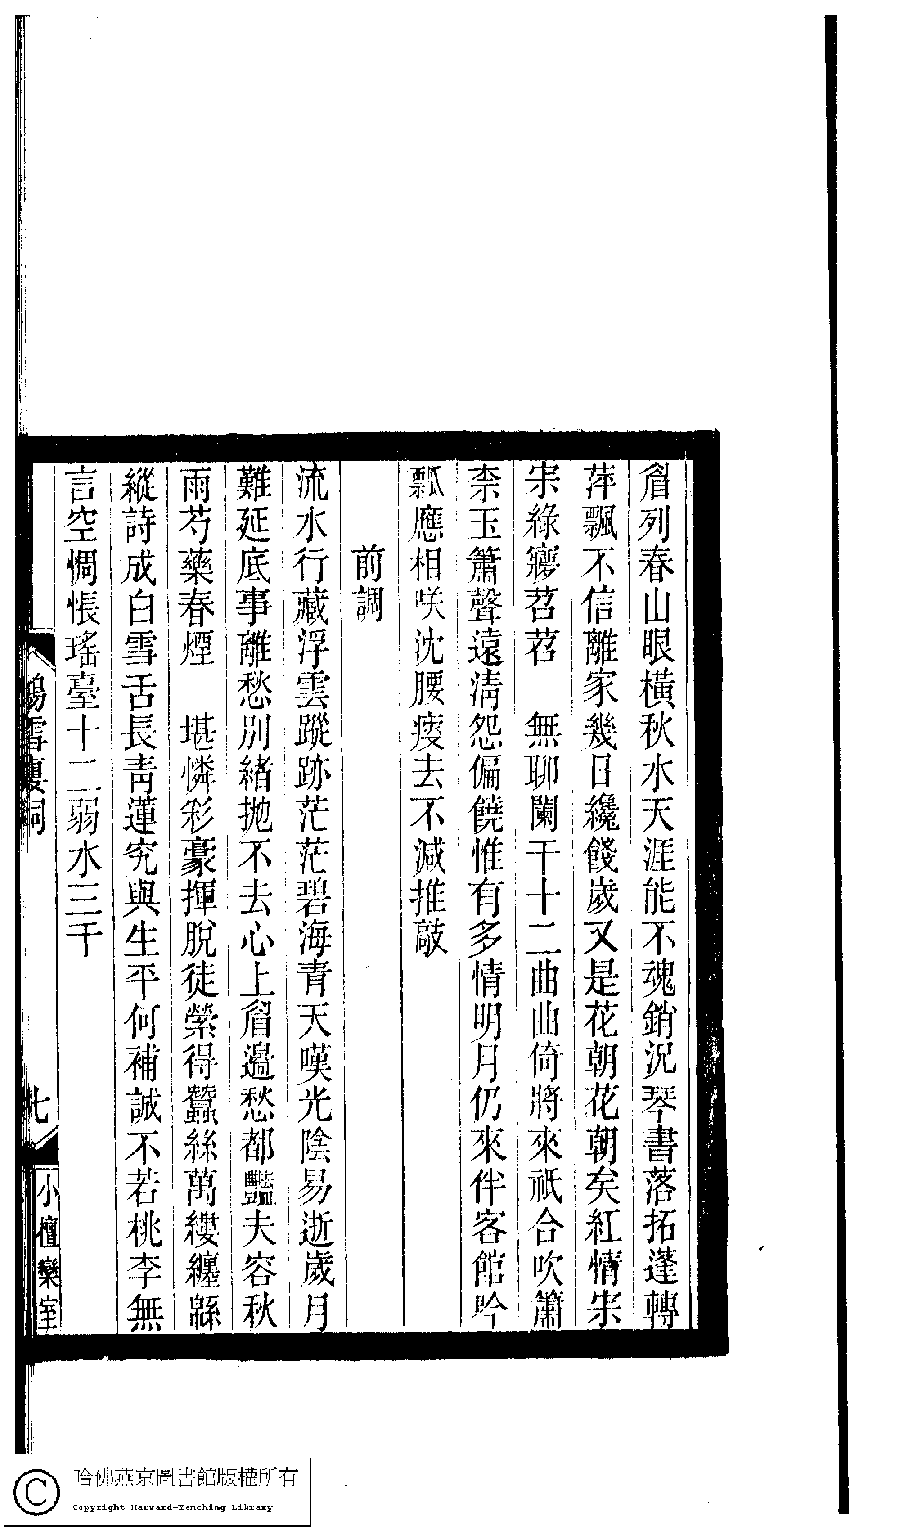 眉列春山眼橫秋水天涯能不魂銷況琴書落拓蓬轉
萍飄不信離家幾日纔餞歲又是花朝花朝矣紅情宋
宋綠寱苕苕　無聊闌干十二曲曲倚將來祇合吹簫
柰玉簫聲遠淸怨偏饒惟有多情明月仍來伴客館吟
瓢應相咲沈腰瘦去不減推敲
前調
流水行藏浮雲蹤跡茫茫碧海青天嘆光陰易逝歲月
難延底事離愁別緒拋不去心上眉邊愁都豔夫容秋
雨芍藥春煙　堪憐彩豪揮脫徒縈得蠶絲萬縷纏緜
縱詩成白雪舌長靑蓮究與生平何補誠不若桃李無
言空惆悵瑤臺十二弱水三千
鴻雪樓詞
七
小檀欒室
哈佛燕京圖書館版權所有
Copyright Harvard-Yenching Library